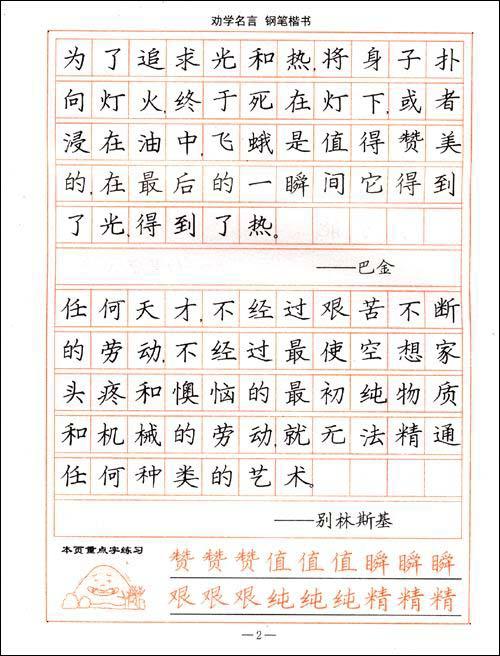 劝学名言 钢笔楷书
为了追求光和热,将身子扑
向灯火,终于死在灯下,或者
浸在油中,飞蛾是值得赞美
的,在最后的一瞬间它得到
了光,得到了热。
——巴金
任何天才,不经过艰苦不断
的劳动,不经过最使空想家
头疼和懊恼的最初纯物质
和机械的劳动,就无法精通
任何种类的艺术。
——别林斯基
本页重点字练习
赞赞赞值值值瞬瞬瞬
艰艰艰纯纯纯精精精
—2—